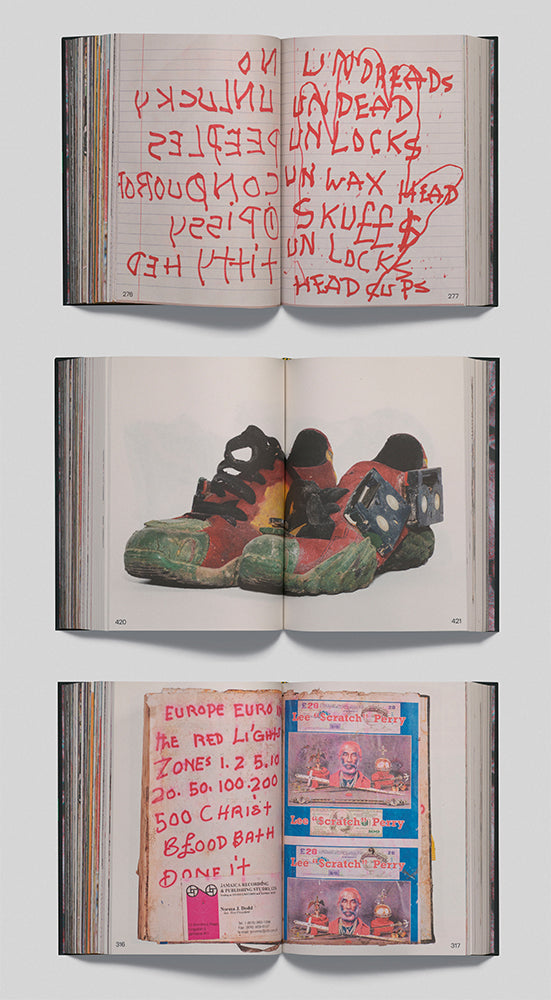 NO
UNLUCKY
PEEPLES
PISSY
TITTY HED
276
UNDREADS
UN DEAD
UN LOCKS
UN WAX HEAD
$KUff$
UN LOCKS
HEAD CUPS
277
420
421
EUROPE EURO
the RED LIGHt
ZONES 1. 2 5. 10
20. 50. 100. 200
500 CHRiSt
B£OOD BATH
DONE it
JAMAICA RECORDING
& PUBLISHING STUDIO, LTD
Norma J. Dodd
316
£20 20
Lee "Scratch" Perry
Lee "Scratch" Perry
£20 20
Lee "Scratch" Perry
317